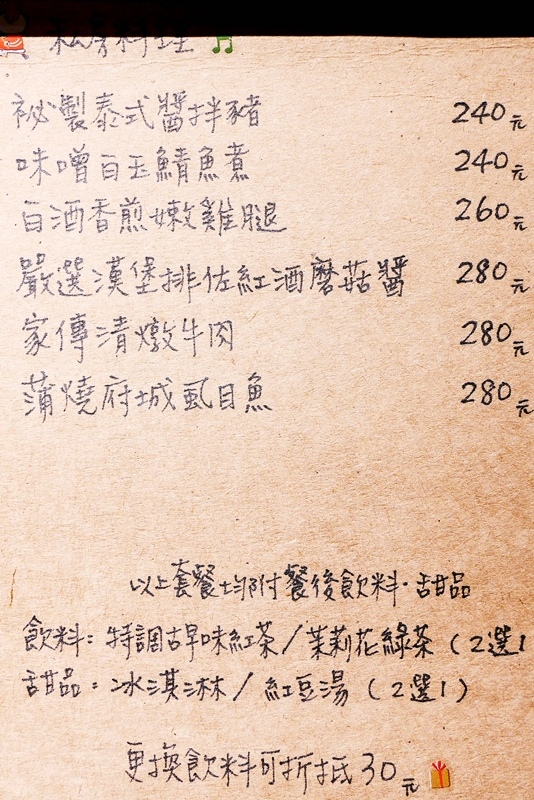 私房料理
祕製泰式醬拌豬 240元
味噌白玉鯖魚煮 240元
白酒香煎嫩雞腿 260元
嚴選漢堡排佐紅酒磨菇醬 280元
家傳清燉牛肉 280元
蒲燒府城虱目魚 280元
以上套餐均附餐後飲料·甜品
飲料：特調古早味紅茶/茉莉花綠茶（2選1
甜品：冰淇淋/紅豆湯（2選1）
更換飲料可折抵30元